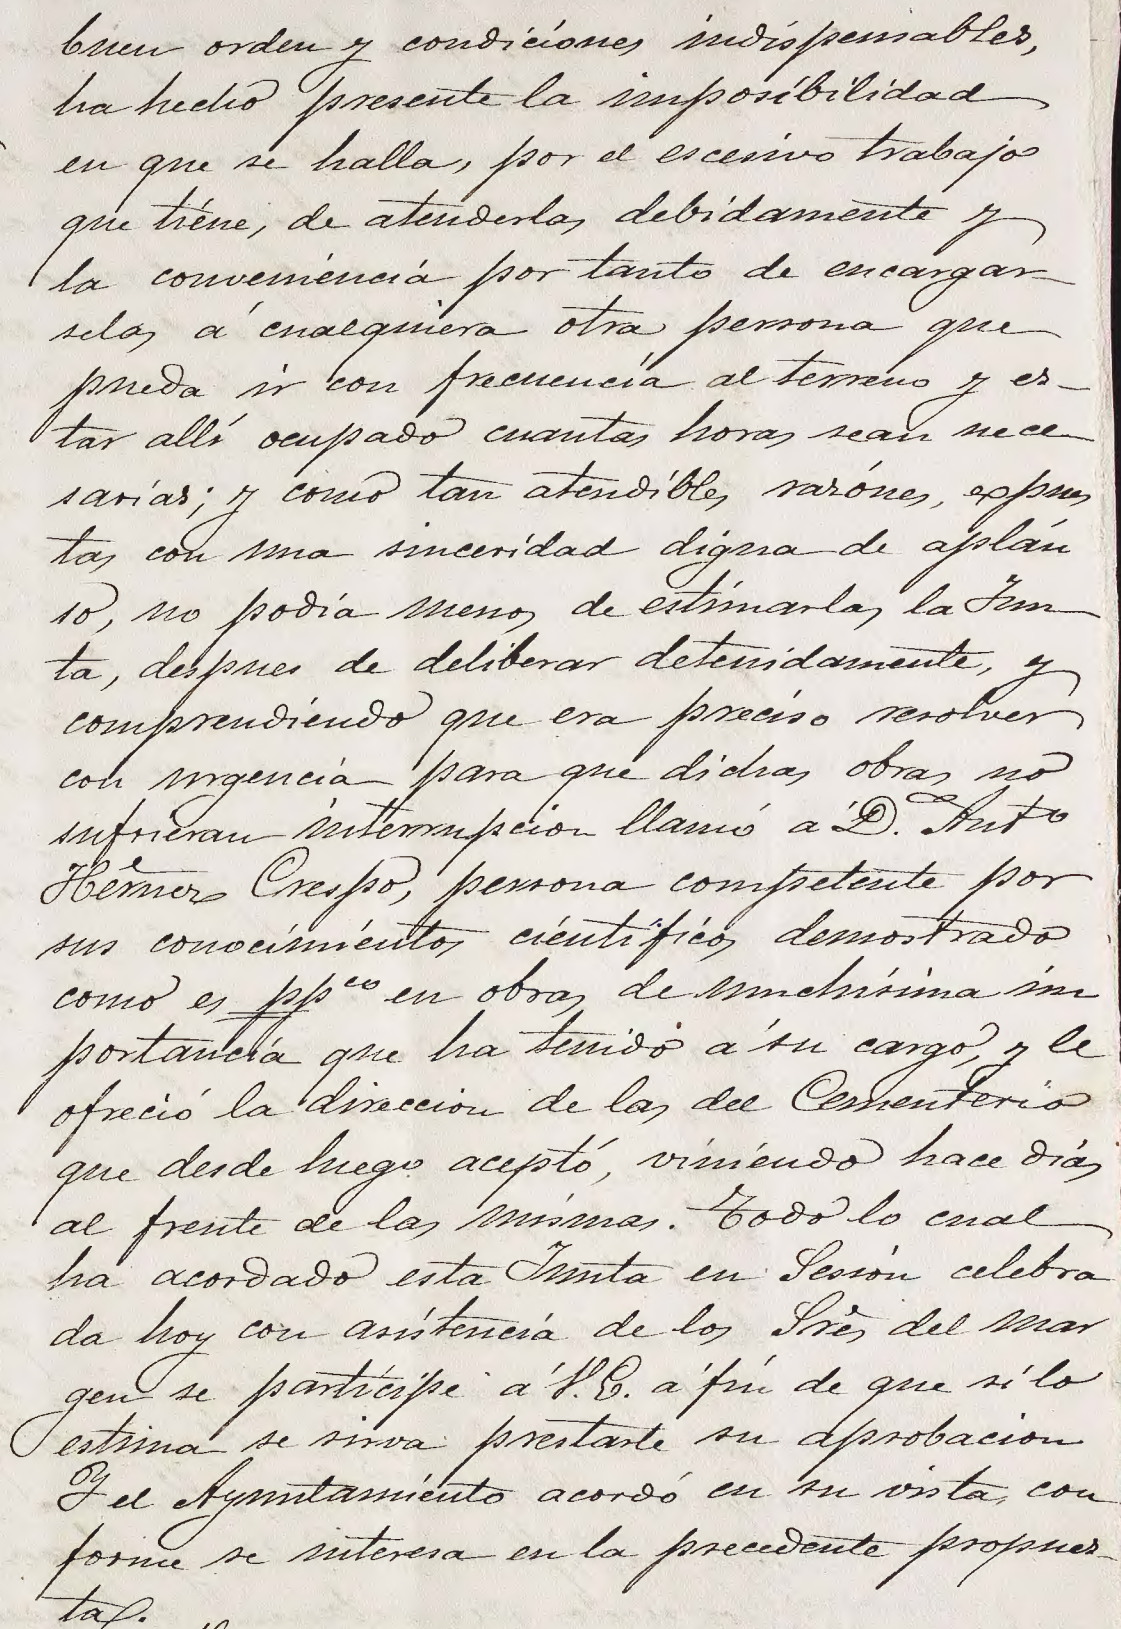 buen orden y condiciones indispensables,
ha hecho presente la imposibilidad
en que se halla, por el escesivo trabajo
que tiene, de atenderlas debidamente y
la conveniencia por tanto de encargar-
selas á cualquiera otra persona que
pueda ir con frecuencia al terreno y es-
tar allí ocupado cuantas horas sean nece
sarias; y como tan atendibles razónes, expues
tas con una sinceridad digna de apláu
so, no podía menos de estimarlas la Jun
ta, despues de deliberar detenidamente, y
comprendiendo que era preciso resolver
con urgencia para que dichas obras no
sufrieran interrupcion llamó á D. Antº
Hernez Crespo, persona competente por
sus conocimientos científicos demostrado
como es ppco en obras de muchísima im
portancia que ha tenido á su cargo, y le
ofreció la direccion de las del Cementerio
que desde luego aceptó, viniendo hace dias
al frente de las mismas. Todo lo cual
ha acordado esta Junta en Sesión celebra
da hoy con asistencia de los Sres del mar
gen se participe á V.E. á fin de que si lo
estima se sirva prestarle su aprobacion
Y el Ayuntamiento acordó en su vista, con
forme se interesa en la precedente propues-
ta.